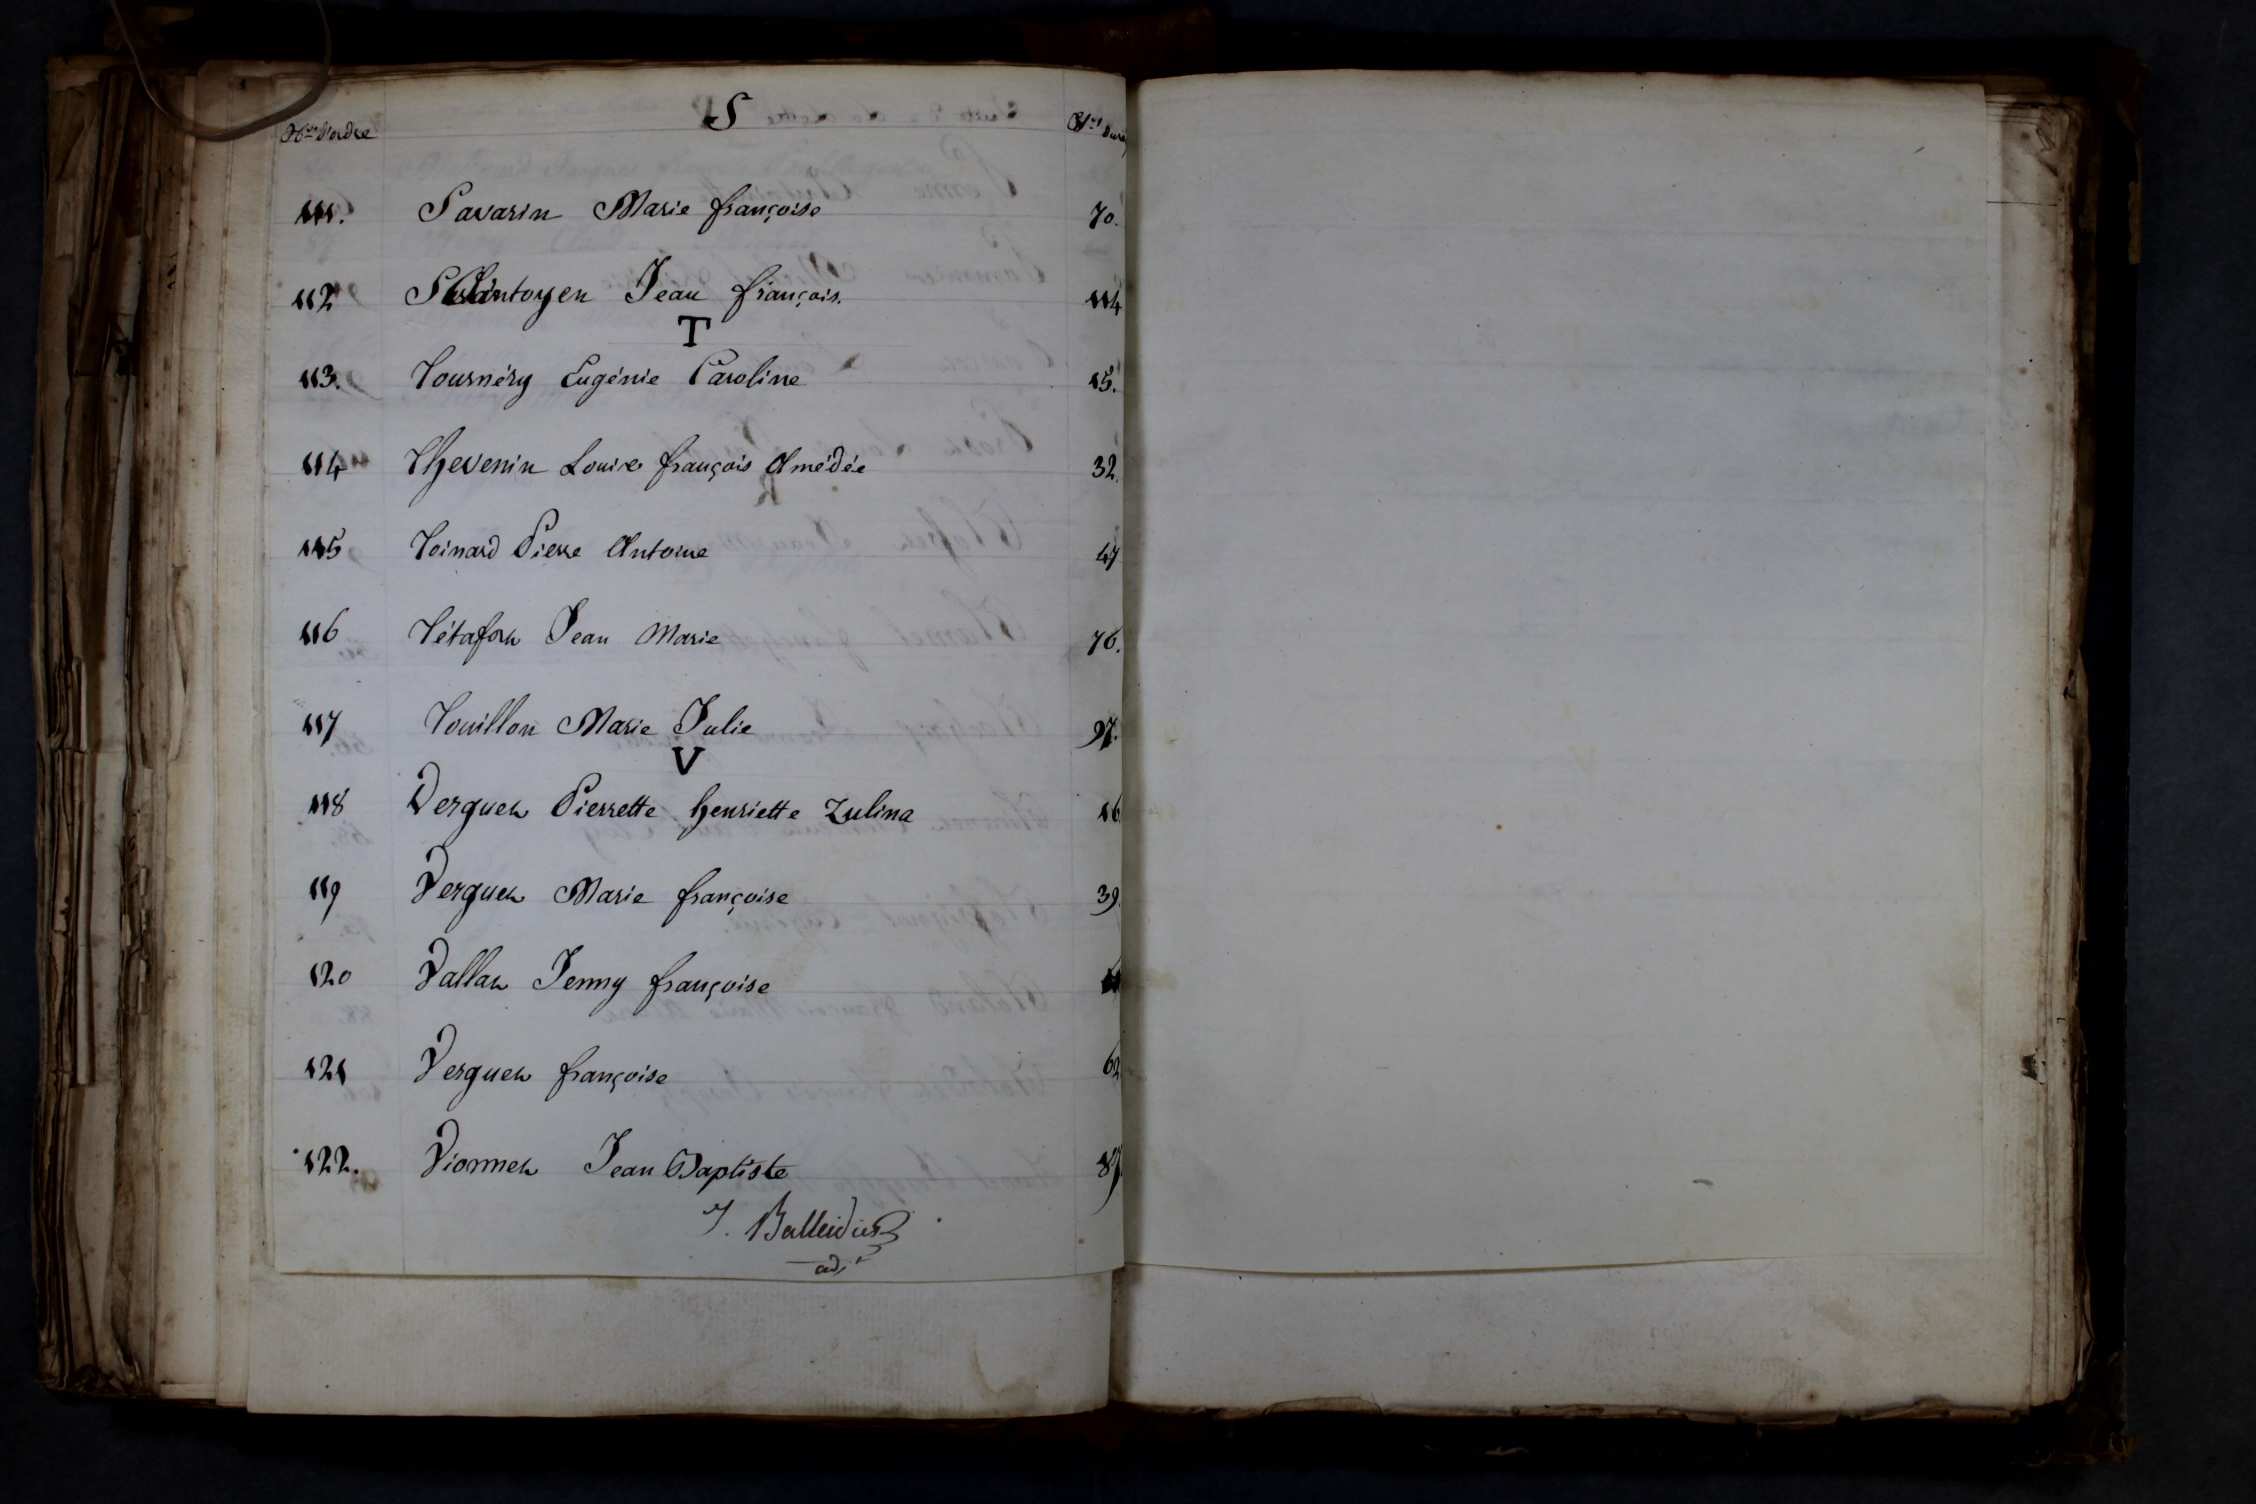 S
Nos d'ordre Nos du re
111. Savarin Marie françoise 70.
112 Jean françois. 114
T
113. Tournéry Eugénie Caroline 15.
114 Thevenin Louis françois Amédée 32.
115 Toinard Pierre Antoine 47
116 Tétafort Jean Marie 76.
117 Touillon Marie Julie 97.
V
118 Verguet Pierrette henriette Zulina 16
119 Verguet Marie françoise 39.
120 Vallat Jenny françoise
121 Verguet françoise 62
122. Vionnet Jean Baptiste 87
J. Balleidier
adjt